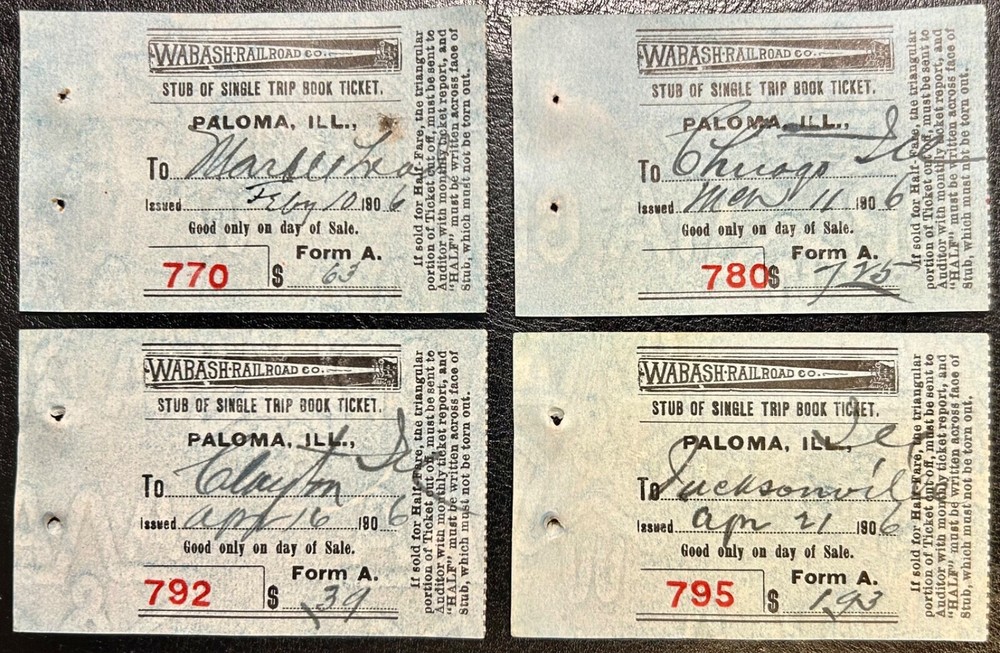 WABASH-RAILROAD CO.
STUB OF SINGLE TRIP BOOK TICKET.
PALOMA, ILL.,
To
Issued Feby 10 1906
Good only on day of Sale.
Form A.
770 $ 63
If sold for Half-Fare, the triangular
portion of Ticket cut off, must be sent to
Auditor with monthly ticket report, and
"HALF" must be written across face of
Stub, which must not be torn out.
WABASH-RAILROAD CO.
STUB OF SINGLE TRIP BOOK TICKET.
PALOMA, ILL.,
To Chicago Ill
Issued Mch 11 1906
Good only on day of Sale.
Form A.
780 $ 725
If sold for Half-Fare, the triangular
portion of Ticket cut off, must be sent to
Auditor with monthly ticket report, and
"HALF" must be written across face of
Stub, which must not be torn out.
WABASH-RAILROAD CO.
STUB OF SINGLE TRIP BOOK TICKET.
PALOMA, ILL.,
To Clayton Ill
Issued Apr 16 1906
Good only on day of Sale.
Form A.
792 $ .39
If sold for Half-Fare, the triangular
portion of Ticket cut off, must be sent to
Auditor with monthly ticket report, and
"HALF" must be written across face of
Stub, which must not be torn out.
WABASH-RAILROAD CO.
STUB OF SINGLE TRIP BOOK TICKET.
PALOMA, ILL.,
To Jacksonville Ill
Issued Apr 21 1906
Good only on day of Sale.
Form A.
795 $ 1.93
If sold for Half-Fare, the triangular
portion of Ticket cut off, must be sent to
Auditor with monthly ticket report, and
"HALF" must be written across face of
Stub, which must not be torn out.